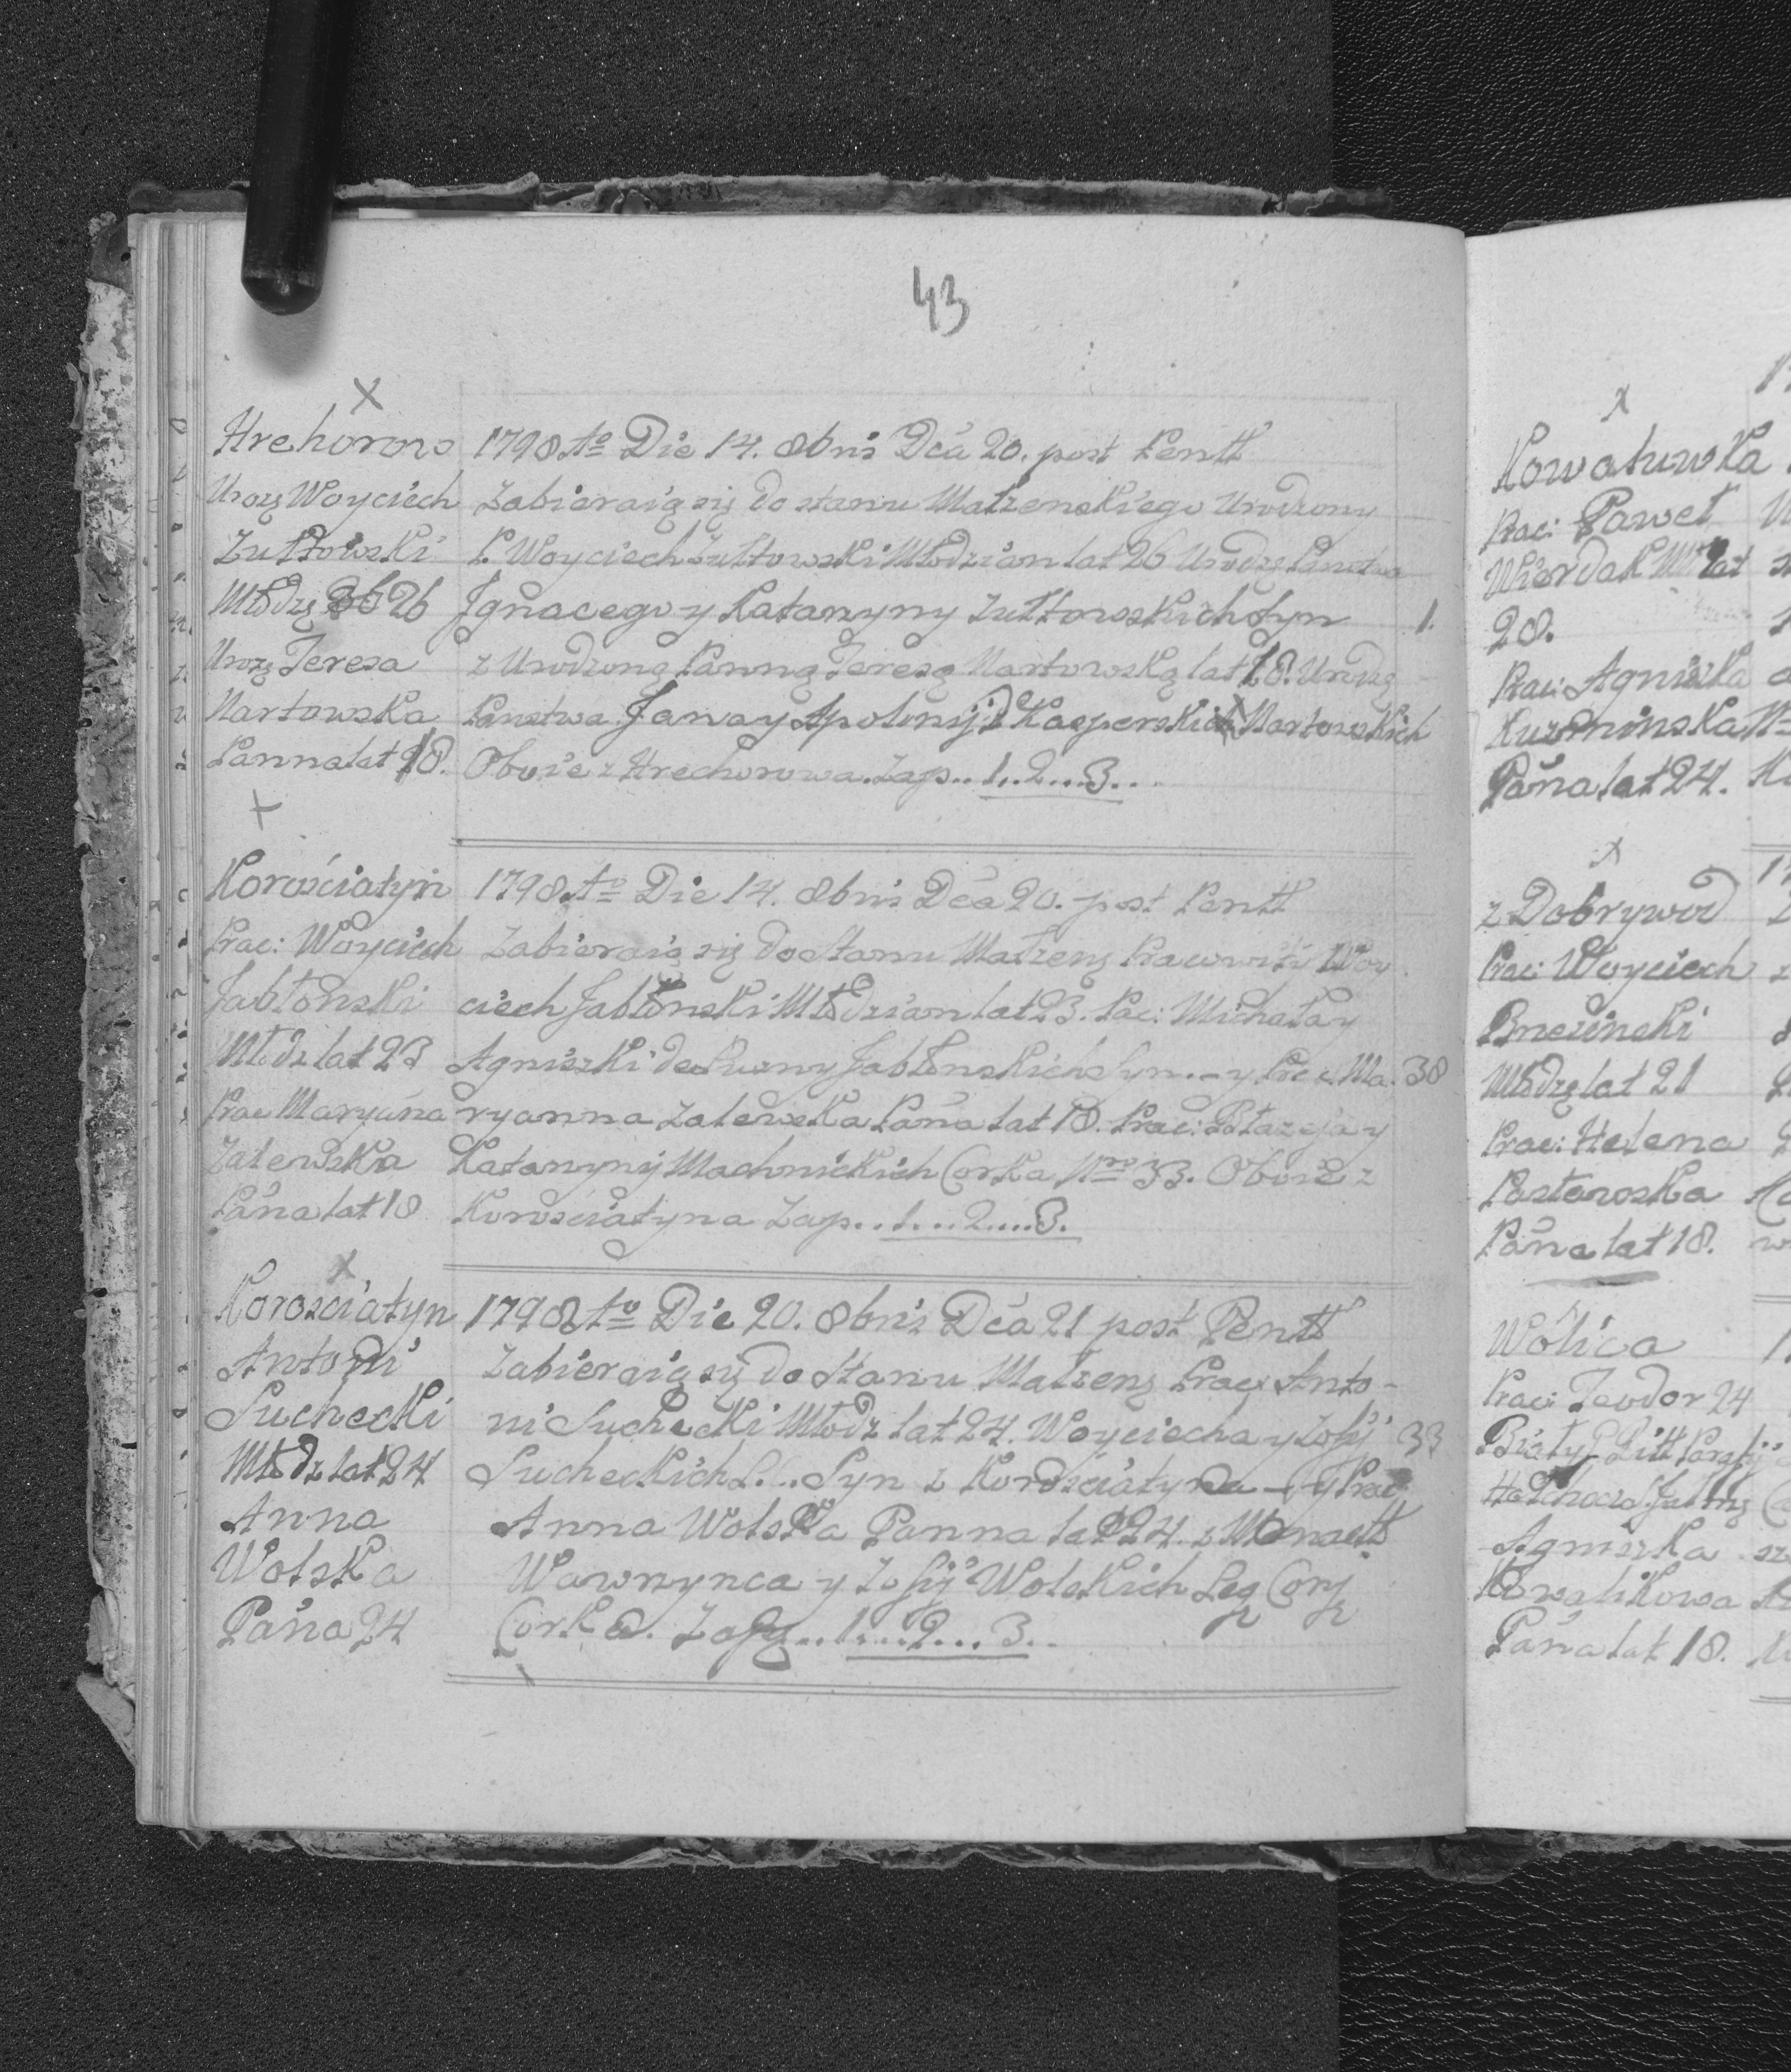 43
x
Hrehorow
Urozę Woyciech
Zułtowski
Młodzę 26
Urozę Teresa
Nartowska
Panna lat 18.
1798 Aо Die 14. 8bris Dca 20. post Pentt
Zabieraią się do stanu Małżenskiego Urodzony
P. Woyciech Zułtowski Młodzian lat 26 Urodzę Panstwa
Jgnacego y Katarzyny Zułtowskich Syn 1.
z Urodzoną Panną Teresą Nartowską lat 18. Urodzę
Panstwa Jana y Apolonij d Kasperskich Nartowskich
Oboie z Hrechorowa. Zap.. 1..2...3...
+
Korościatyn
Prac: Woyciech
Jabłonski
Młodz lat 23
Prac Maryana
Zalewska
Pańa lat 18
1798 Ao Die 14. 8bris Dca 20. post Pentt
Zabieraią się do Stanu Małzenę Pracowiti Woy
ciech Jabłonski Młodzian lat 23. Pac: Michała y
Agniszki de Jabłonskich Syn. - y Prac Ma. 38
ryanna Zalewska Pańa lat 18. Prac: Błazeja y
Katarzynÿ Machnickich Corka Nro 33. Oboie z
Korosciatyna Zap...1...2....3.
x
Korosciatyn
Antoni
Suchecki
Młodz lat 24
Anna
Wolska
Pańa 24
1798 Ao Die 20. 8bris Dca 21 post Pentt
Zabieraią się do Stanu Małzenę Prac: Anto-
ni Suchecki Młodz lat 24. Woyciecha y Zofij 33
Sucheckich L.C. Syn z Korosciatyna - y Prac
Anna Wolska Panna lat 24. z
Wawrzynca y Zofij Wolskich Leg Conj
Corka. Zap...1...2...3..
x
Kowaluwka
Prac: Paweł
Wierdak Mł lat
20.
Prac: Agniszka
Kuzminska
Pańa lat 24.
x
z Dobrywod
Prac: Woyciech
Młodzę lat 21
Prac: Helena
Pasławska
Pańa lat 18.
Wolica
Prac: Teodor 24
Biały Ritt Parafij
Agniszka
Kowalikowa
Pańa lat 18.